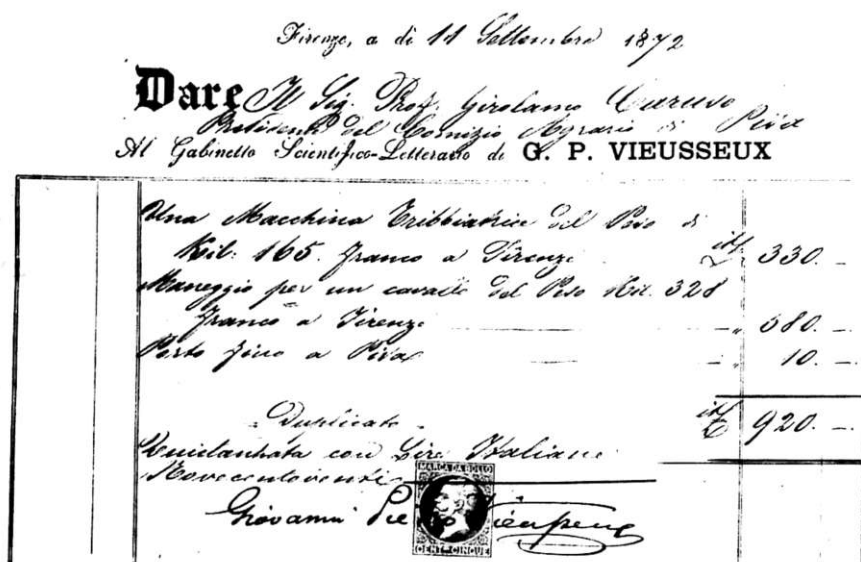 Firenze, a di 11 Settembre 1872
Dare Il Sig. Prof. Girolamo Caruso
Presidente del Comizio Agrario di Pisa
Al Gabinetto Scientifico-Letterario di G. P. VIEUSSEUX
Una Macchina Trebbiatrice del Peso di
Kil: 165. franco a Firenze it£ 330. —
Maneggio per un cavallo del Peso Kil. 328
franco a Firenze — „ 580. —
Porto fino a Pisa — „ 10. —
Duplicato it£ 920. —
Quietanzata con Lire Italiane
Novecentoventi
MARCA DA BOLLO
Giovanni Pietro Vieusseux
CENT. CINQUE